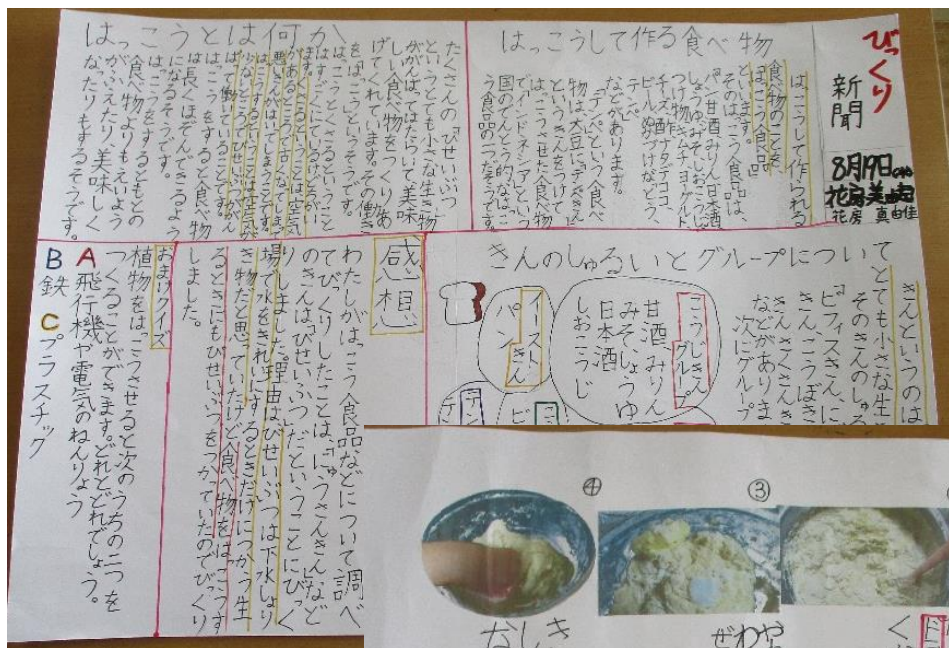 びっくり
新聞
8月19日
花房 真由佳
はっこうして作る食べ物
はっこうして作られる
食べ物のことを
はっこう食品
といいます。
そのはっこう食品は、
パン甘酒みりん日本酒
しょうゆみそしおこうじ
つけ物キムチヨーグルト
チーズ酢ナタデココ、
ビールぬかづけなどど、
などがあります。
「テンペ」という食べ
物は大豆にテンペきん
というきんをつけて
はっこうさせた食べ物
でインドネシアという
国のでんとう的なはっこ
う食品の一つだそうです。
はっこうとは何か
たくさんの「びせいぶつ」
というとても小さな生き物
ががんばってはたらいて美味
しい食べ物をつくりあ
げてくれています。その働き
をはっこうというそうです。
はっこうをすると食べ物
は長くほぞんできるよう
になるそうです。
はっこうをするともとの
食べ物よりもえいよう
がふえたり、美味しく
なったりもするそうです。
きんのしゅるいとグループについて
きんというのは
とても小さな生
そのきんのしゅる
ビフィズスきんに
きん、こうぼき
きんさくさんき
などがありま
次にグループ
こうじきん
グループ
甘酒、みりん
みそしょうゆ
日本酒
しおこうじ
イースト
きん
パン
感想
わたしがはっこう食品などについて調べ
てびっくりしたことは、「にゅうさんきん」など
のきんは「びせいぶつ」だということにびっく
りしました。理由はびせいぶつは下水しょり
場で水をきれいにするときだけにつかう生
き物だと思っていたけど食べ物をはっこうす
るときにもびせいぶつをつかっていたのでびっくり
しました。
おまけクイズ
植物をはっこうさせると次のうちの二つを
つくることができます。どれとどれでしょう。
A 飛行機や電気のねんりょう
B 鉄 C プラスチック
④
③